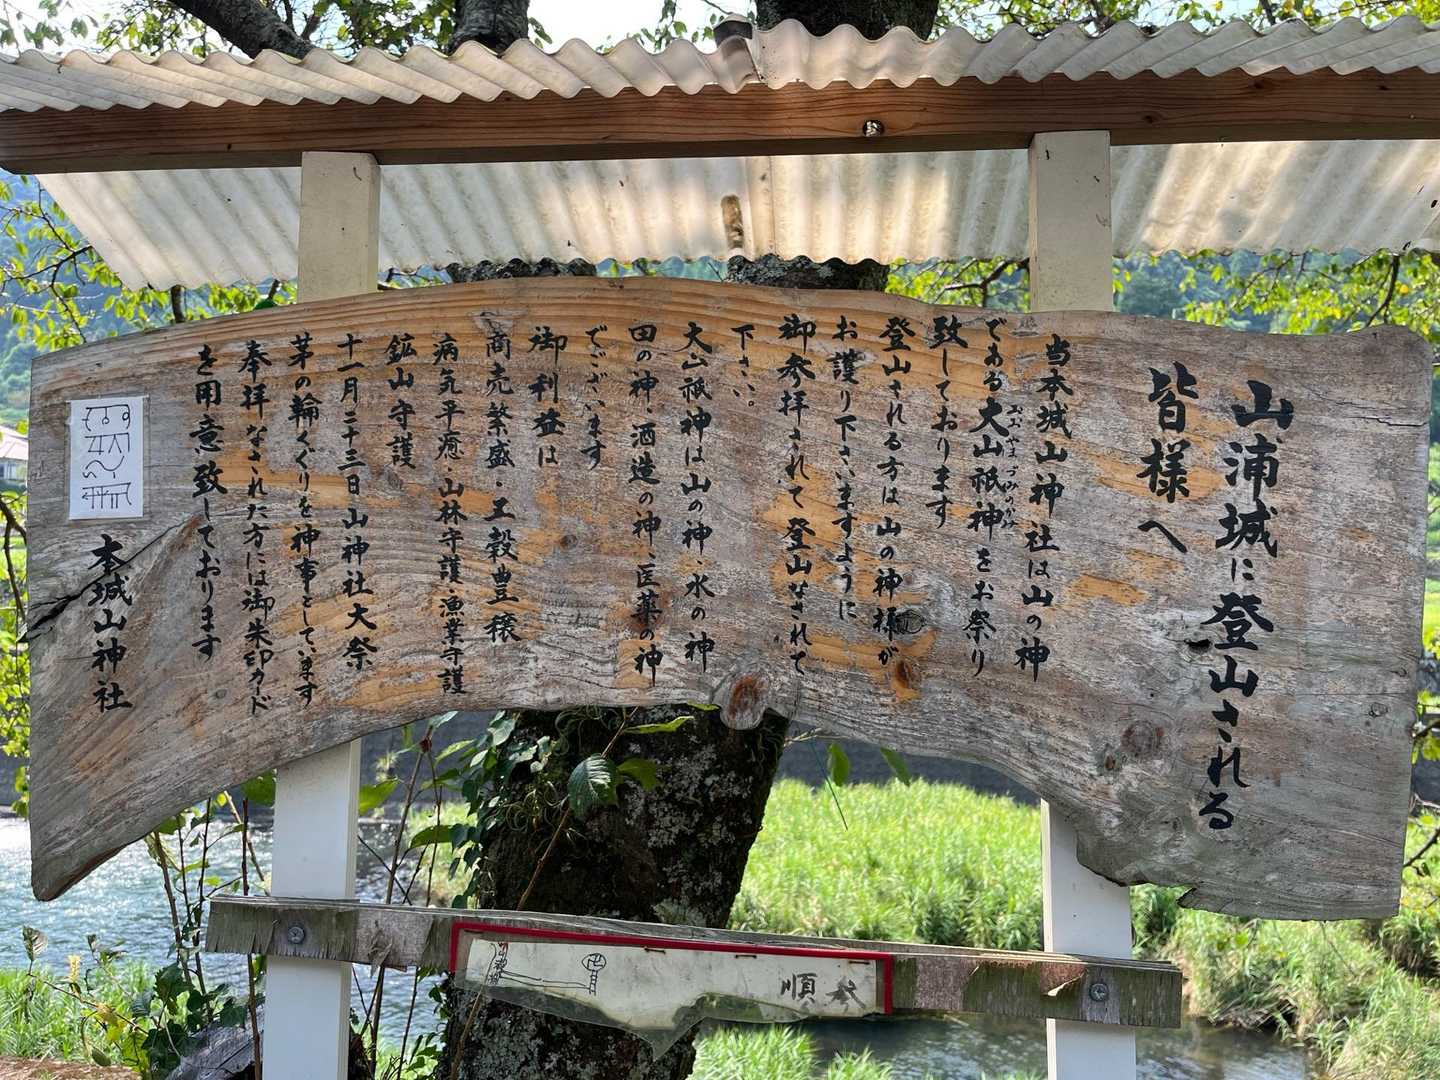 山浦城に登山される
皆様へ
当本城山神社は山の神
である大山祇神をお祭り
おおやまづみのかみ
致しております
登山される方は山の神様が
お護り下さいますように
御参拝されて登山なされて
下さい。
大山祇神は山の神、水の神
田の神、酒造の神、医薬の神
でございます
御利益は
商売繁盛・五穀豊穣
病気平癒・山林守護・漁業守護
鉱山守護
十一月二十三日山神社大祭
茅の輪くぐりを神事としています
奉拝なされた方には御朱印カード
を用意致しております
本城山神社
参順